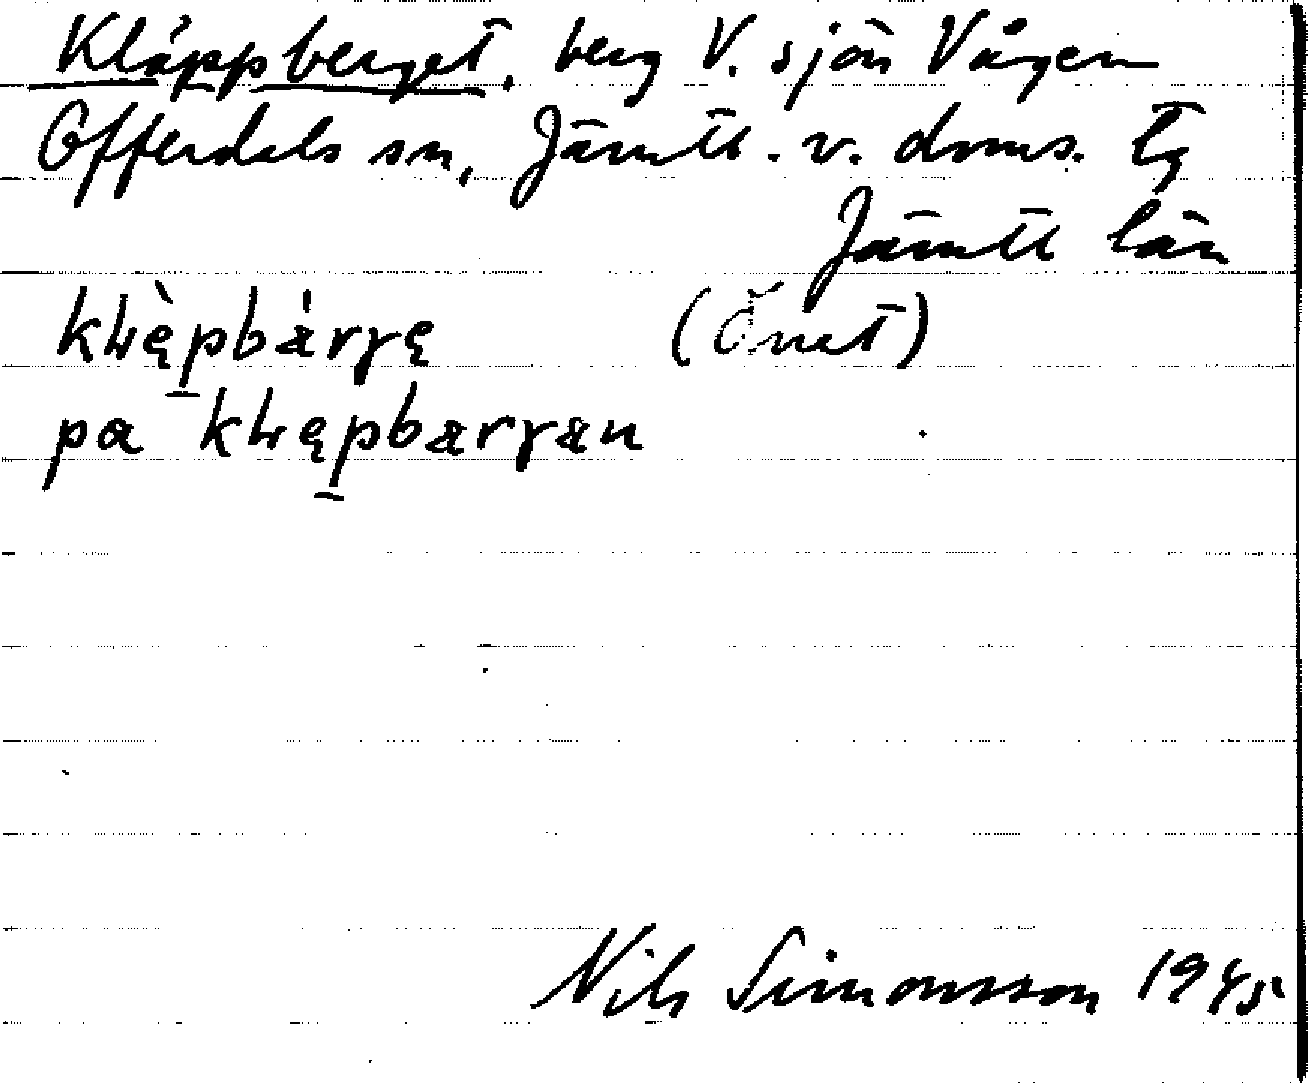 Kläppberget, berg V. sjön Vågen
Offerdals sn, Jämtl. v. doms. tg
Jämtl län
kƚę̀pbáryę (Önet)
pa kƚępbæryæn
Nils Simonsson 1945